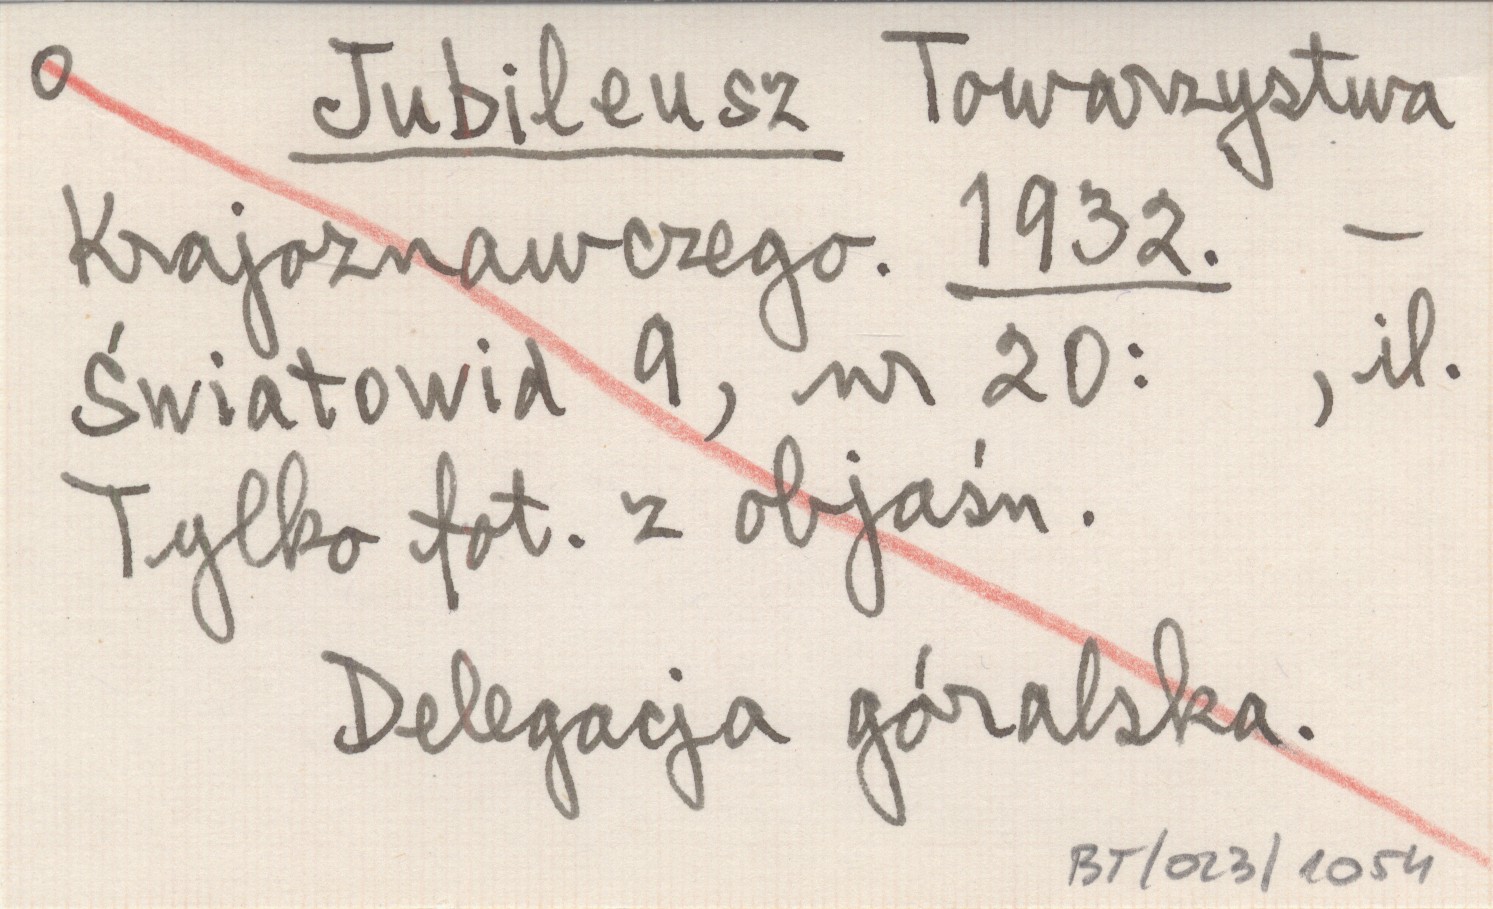 o Jubileusz Towarzystwa
Krajoznawczego. 1932. –
Światowid 9, nr 20: , il.
Tylko fot. z objaśn.
Delegacja góralska.
BT/023/1054